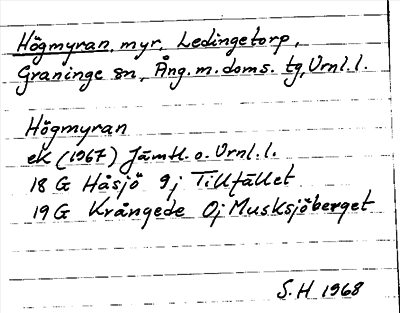 Högmyran, myr, Ledingetorp,
Graninge sn, Ång. m. doms. tg, Vrnl. l.
Högmyran
ek (1967) Jämtl. o. Vrnl. l.
18 G Håsjö 9j Tillfället
19 G Krångede 0j Musksjöberget
S. H 1968